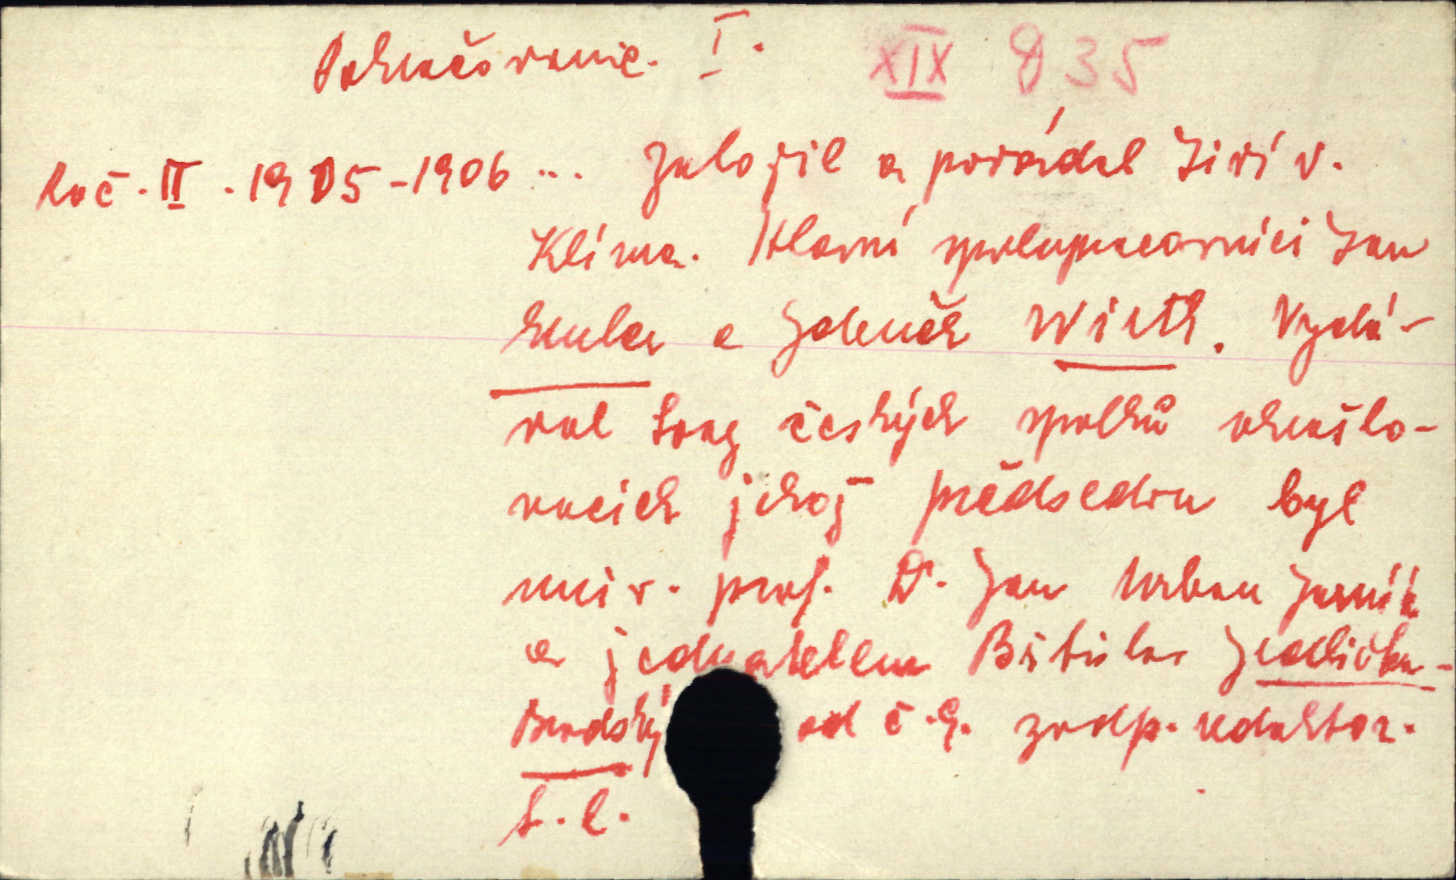 Pokračovanie. I. XIX 835
Roč. II. 1905-1906 ... Založil a pořádal Jiří V.
Klíma. Hlavní spolupracovníci Jan
a Zdeněk Wirth. Vydá-
val Svaz českých spolků okrašlo-
vacích jehož předsedou byl
univ. prof. Dr. Jan Urban Jarník
a jednatelem Jedlička-
Brodský od č. 9. zodp. redaktor.